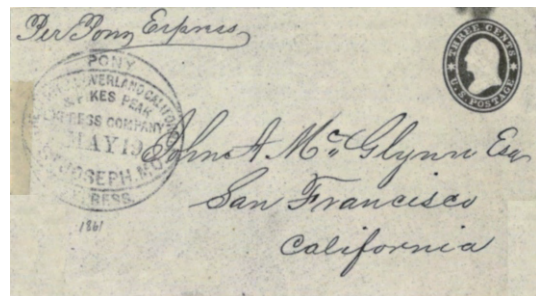 Per Pony Express
THREE CENTS
U.S. POSTAGE
PONY
OVERLAND CALIFORNIA
& PIKES PEAK
EXPRESS COMPANY
MAY 19
ST JOSEPH, MO
EXPRESS.
John A McGlynn Esq
San Francisco
California
1861